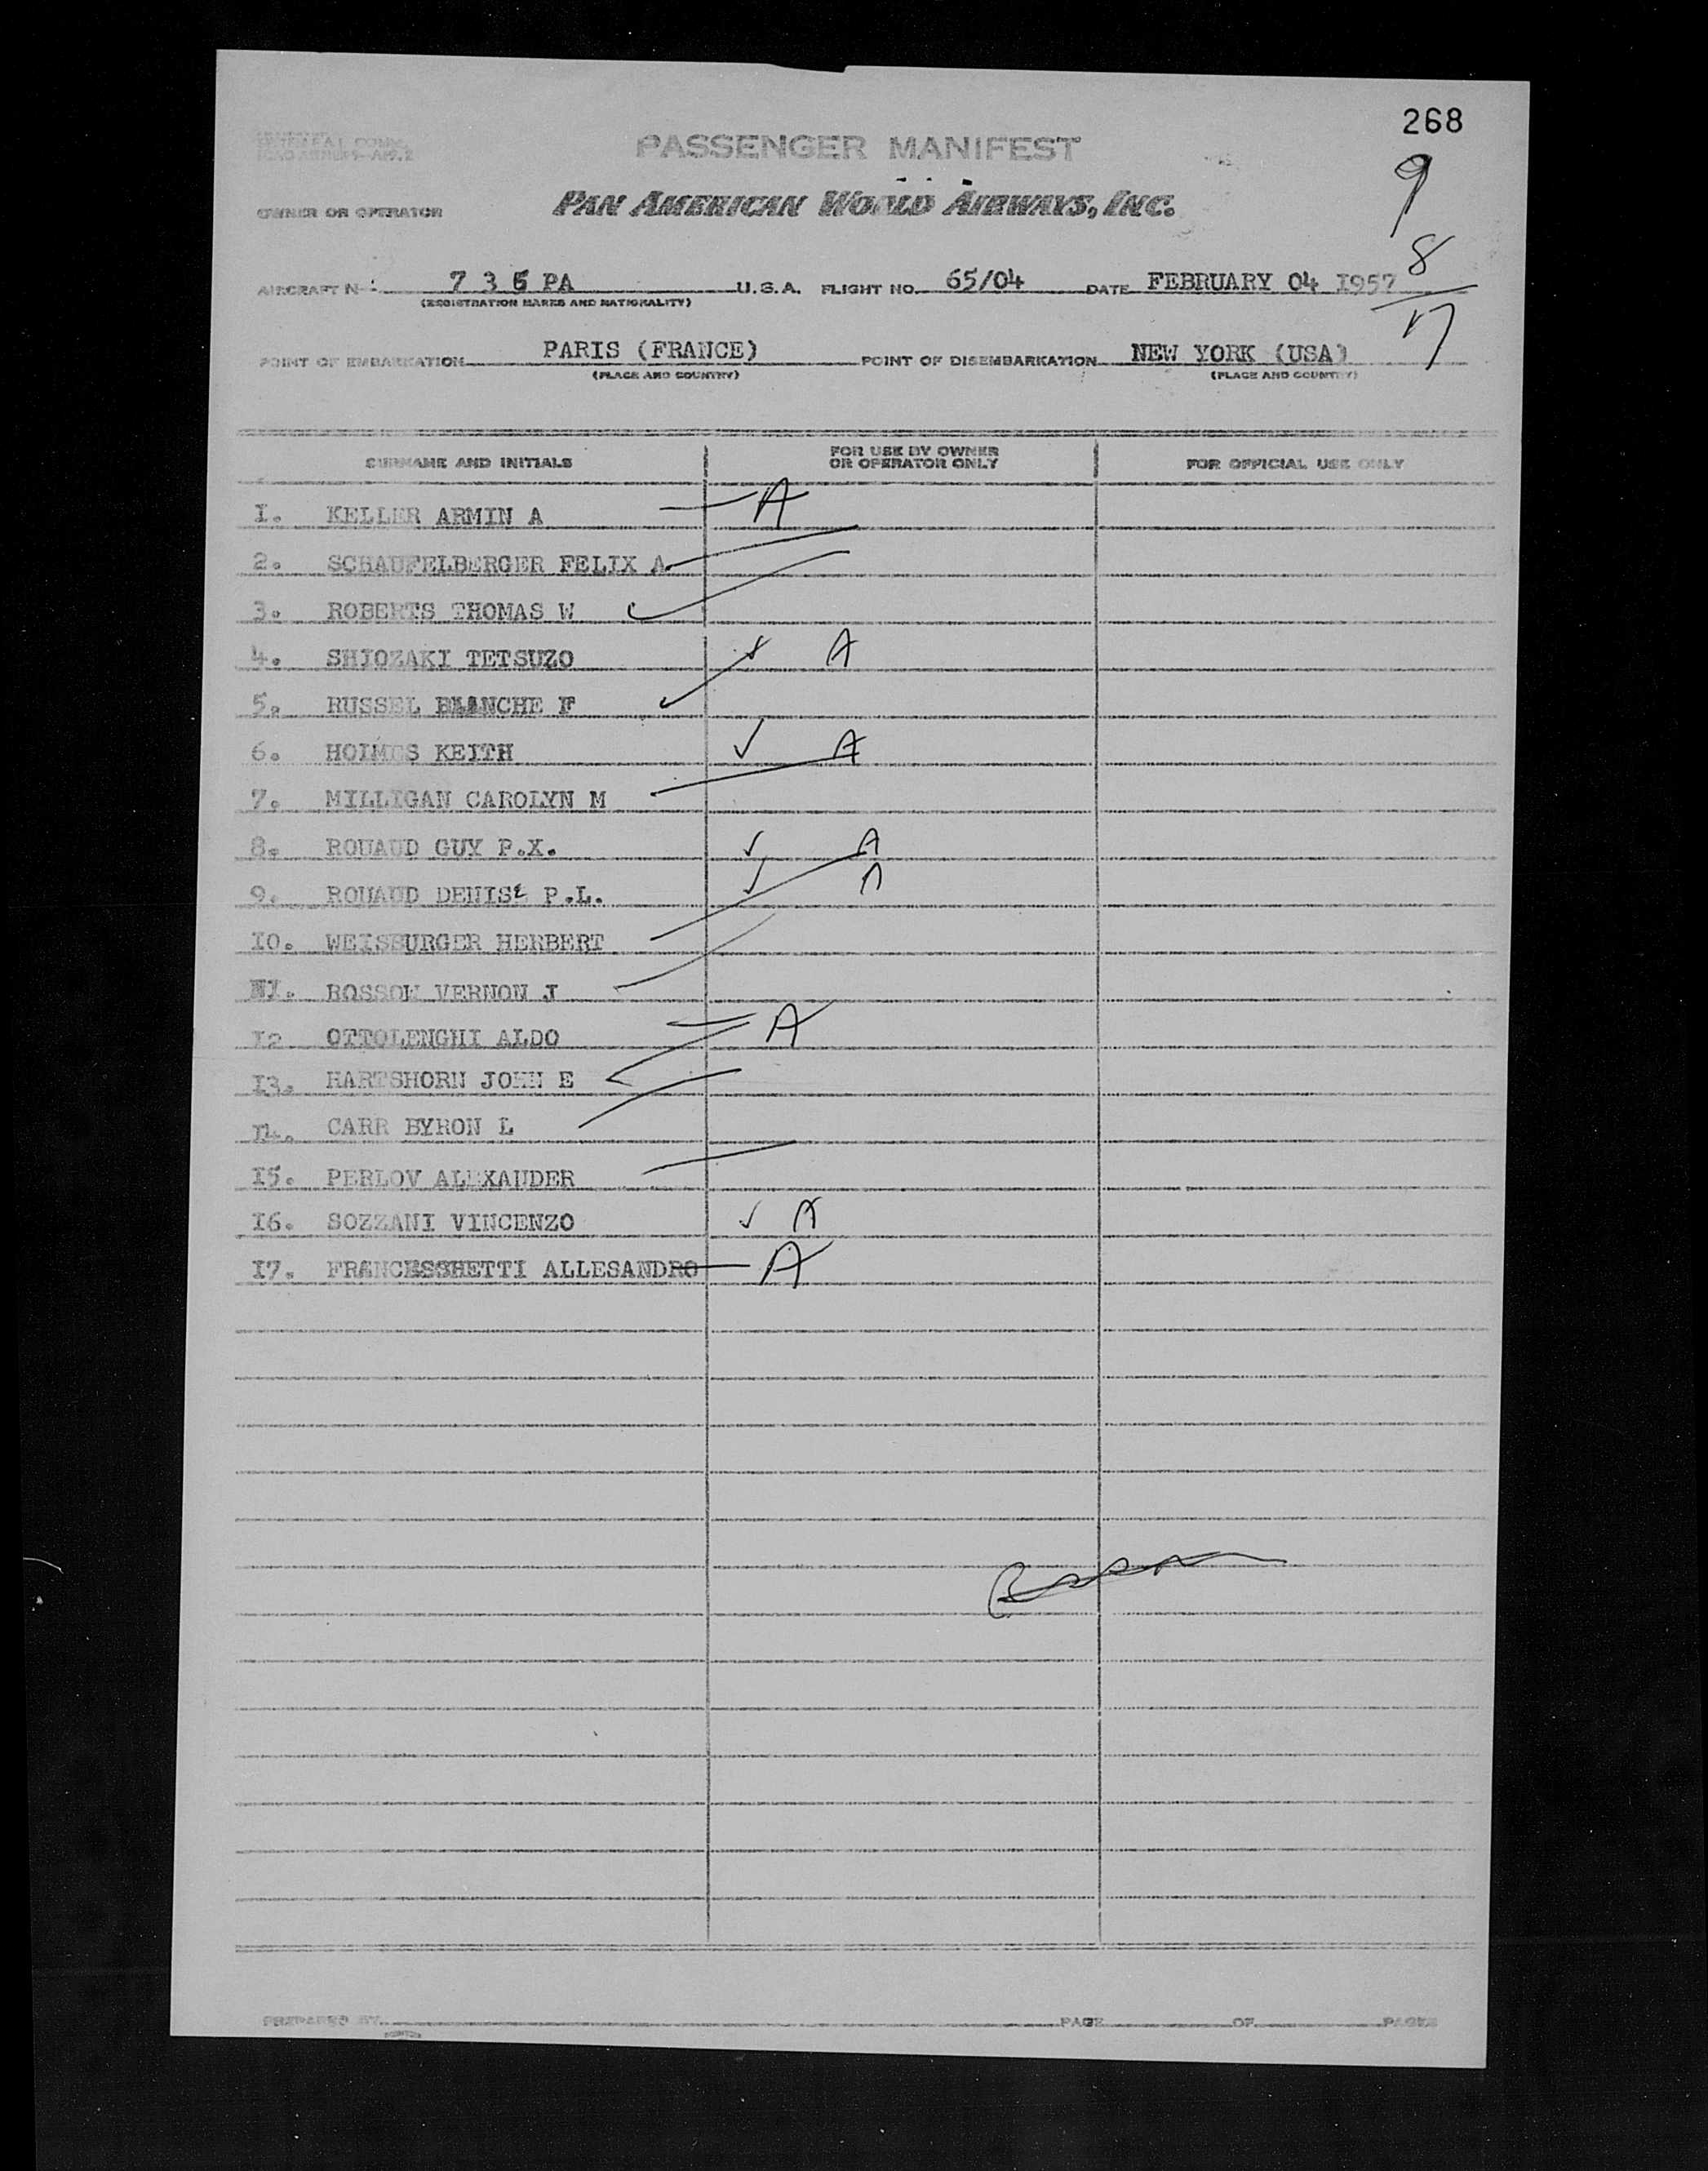 268
PASSENGER MANIFEST
9
OWNER OR OPERATOR PAN AMERICAN WORLD AIRWAYS, INC.
8
AIRCRAFT N 7 3 PA U.S.A. FLIGHT NO. 65/04 DATE FEBRUARY 04 1957
(REGISTRATION MARKS AND NATIONALITY)
17
POINT OF EMBARKATION PARIS (FRANCE) POINT OF DISEMBARKATION NEW YORK (USA)
(PLACE AND COUNTRY) (PLACE AND COUNTRY)
SURNAME AND INITIALS FOR USE BY OWNER OR OPERATOR ONLY FOR OFFICIAL USE ONLY
I. KELLER ARMIN A A
2. SCHAUFELBERGER FELIX A.
3. ROBERTS THOMAS W
4. SHIOZAKI TETSUZO ✓ A
5. RUSSEL BLANCHE F
6. HOIMES KEITH ✓ A
7. MILLIGAN CAROLYN M
8. ROUAUD GUY P.X. ✓ A
9. ROUAUD DENISE P.L. ✓ A
I0. WEISBURGER HERBERT
ROSSOW VERNON J
I2 OTTOLENGHI ALDO A
I3. HARTSHORN JOHN E
I4. CARR BYRON L
I5. PERLOV ALEXANDER
I6. SOZZANI VINCENZO ✓ A
I7. FRANCESCHETTI ALLESANDRO A
PREPARED BY PAGE OF PAGES